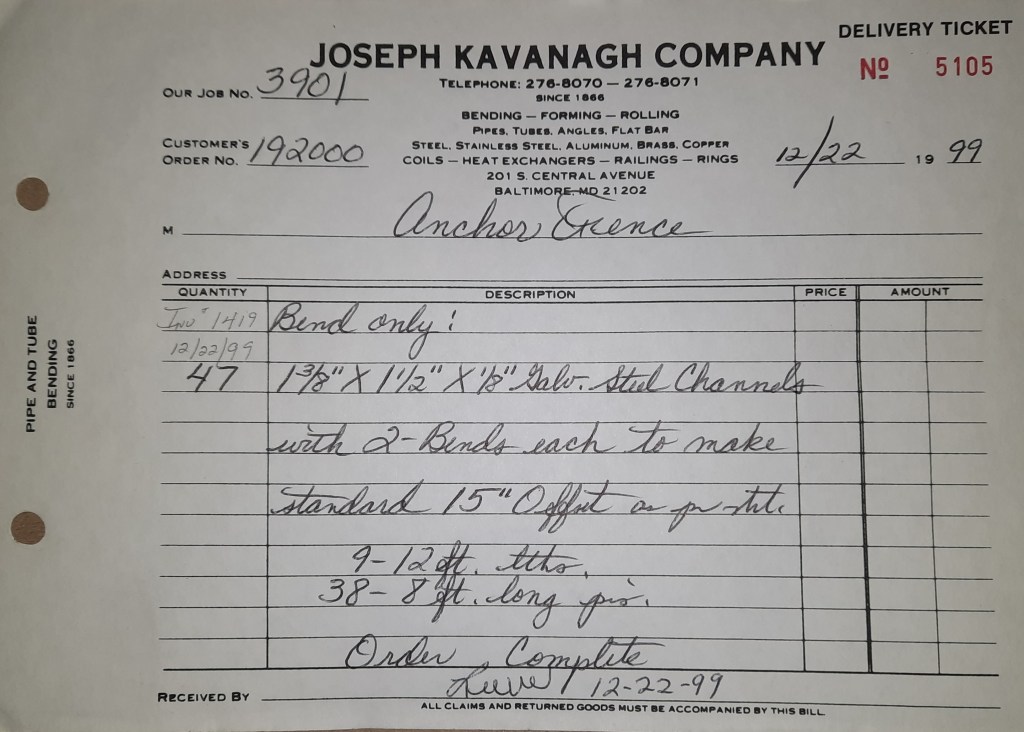 DELIVERY TICKET
JOSEPH KAVANAGH COMPANY
Nº 5105
TELEPHONE: 276-8070 — 276-8071
SINCE 1866
OUR JOB NO. 3901
BENDING — FORMING — ROLLING
PIPES, TUBES, ANGLES, FLAT BAR
STEEL, STAINLESS STEEL, ALUMINUM, BRASS, COPPER
COILS — HEAT EXCHANGERS — RAILINGS — RINGS
201 S. CENTRAL AVENUE
BALTIMORE, MD 21202
CUSTOMER'S
ORDER NO. 192000
12/22 19 99
M Anchor Fence
ADDRESS
QUANTITY DESCRIPTION PRICE AMOUNT
Inv # 1419 Bend only:
12/22/99
47 1 3/8" X 1 1/2" X 1/8" Galv. Steel Channels
with 2-Bends each to make
standard 15" Offset as per
9-12 ft. lths.
38-8 ft. long pcs.
Order Complete
RECEIVED BY 12-22-99
ALL CLAIMS AND RETURNED GOODS MUST BE ACCOMPANIED BY THIS BILL
PIPE AND TUBE
BENDING
SINCE 1866